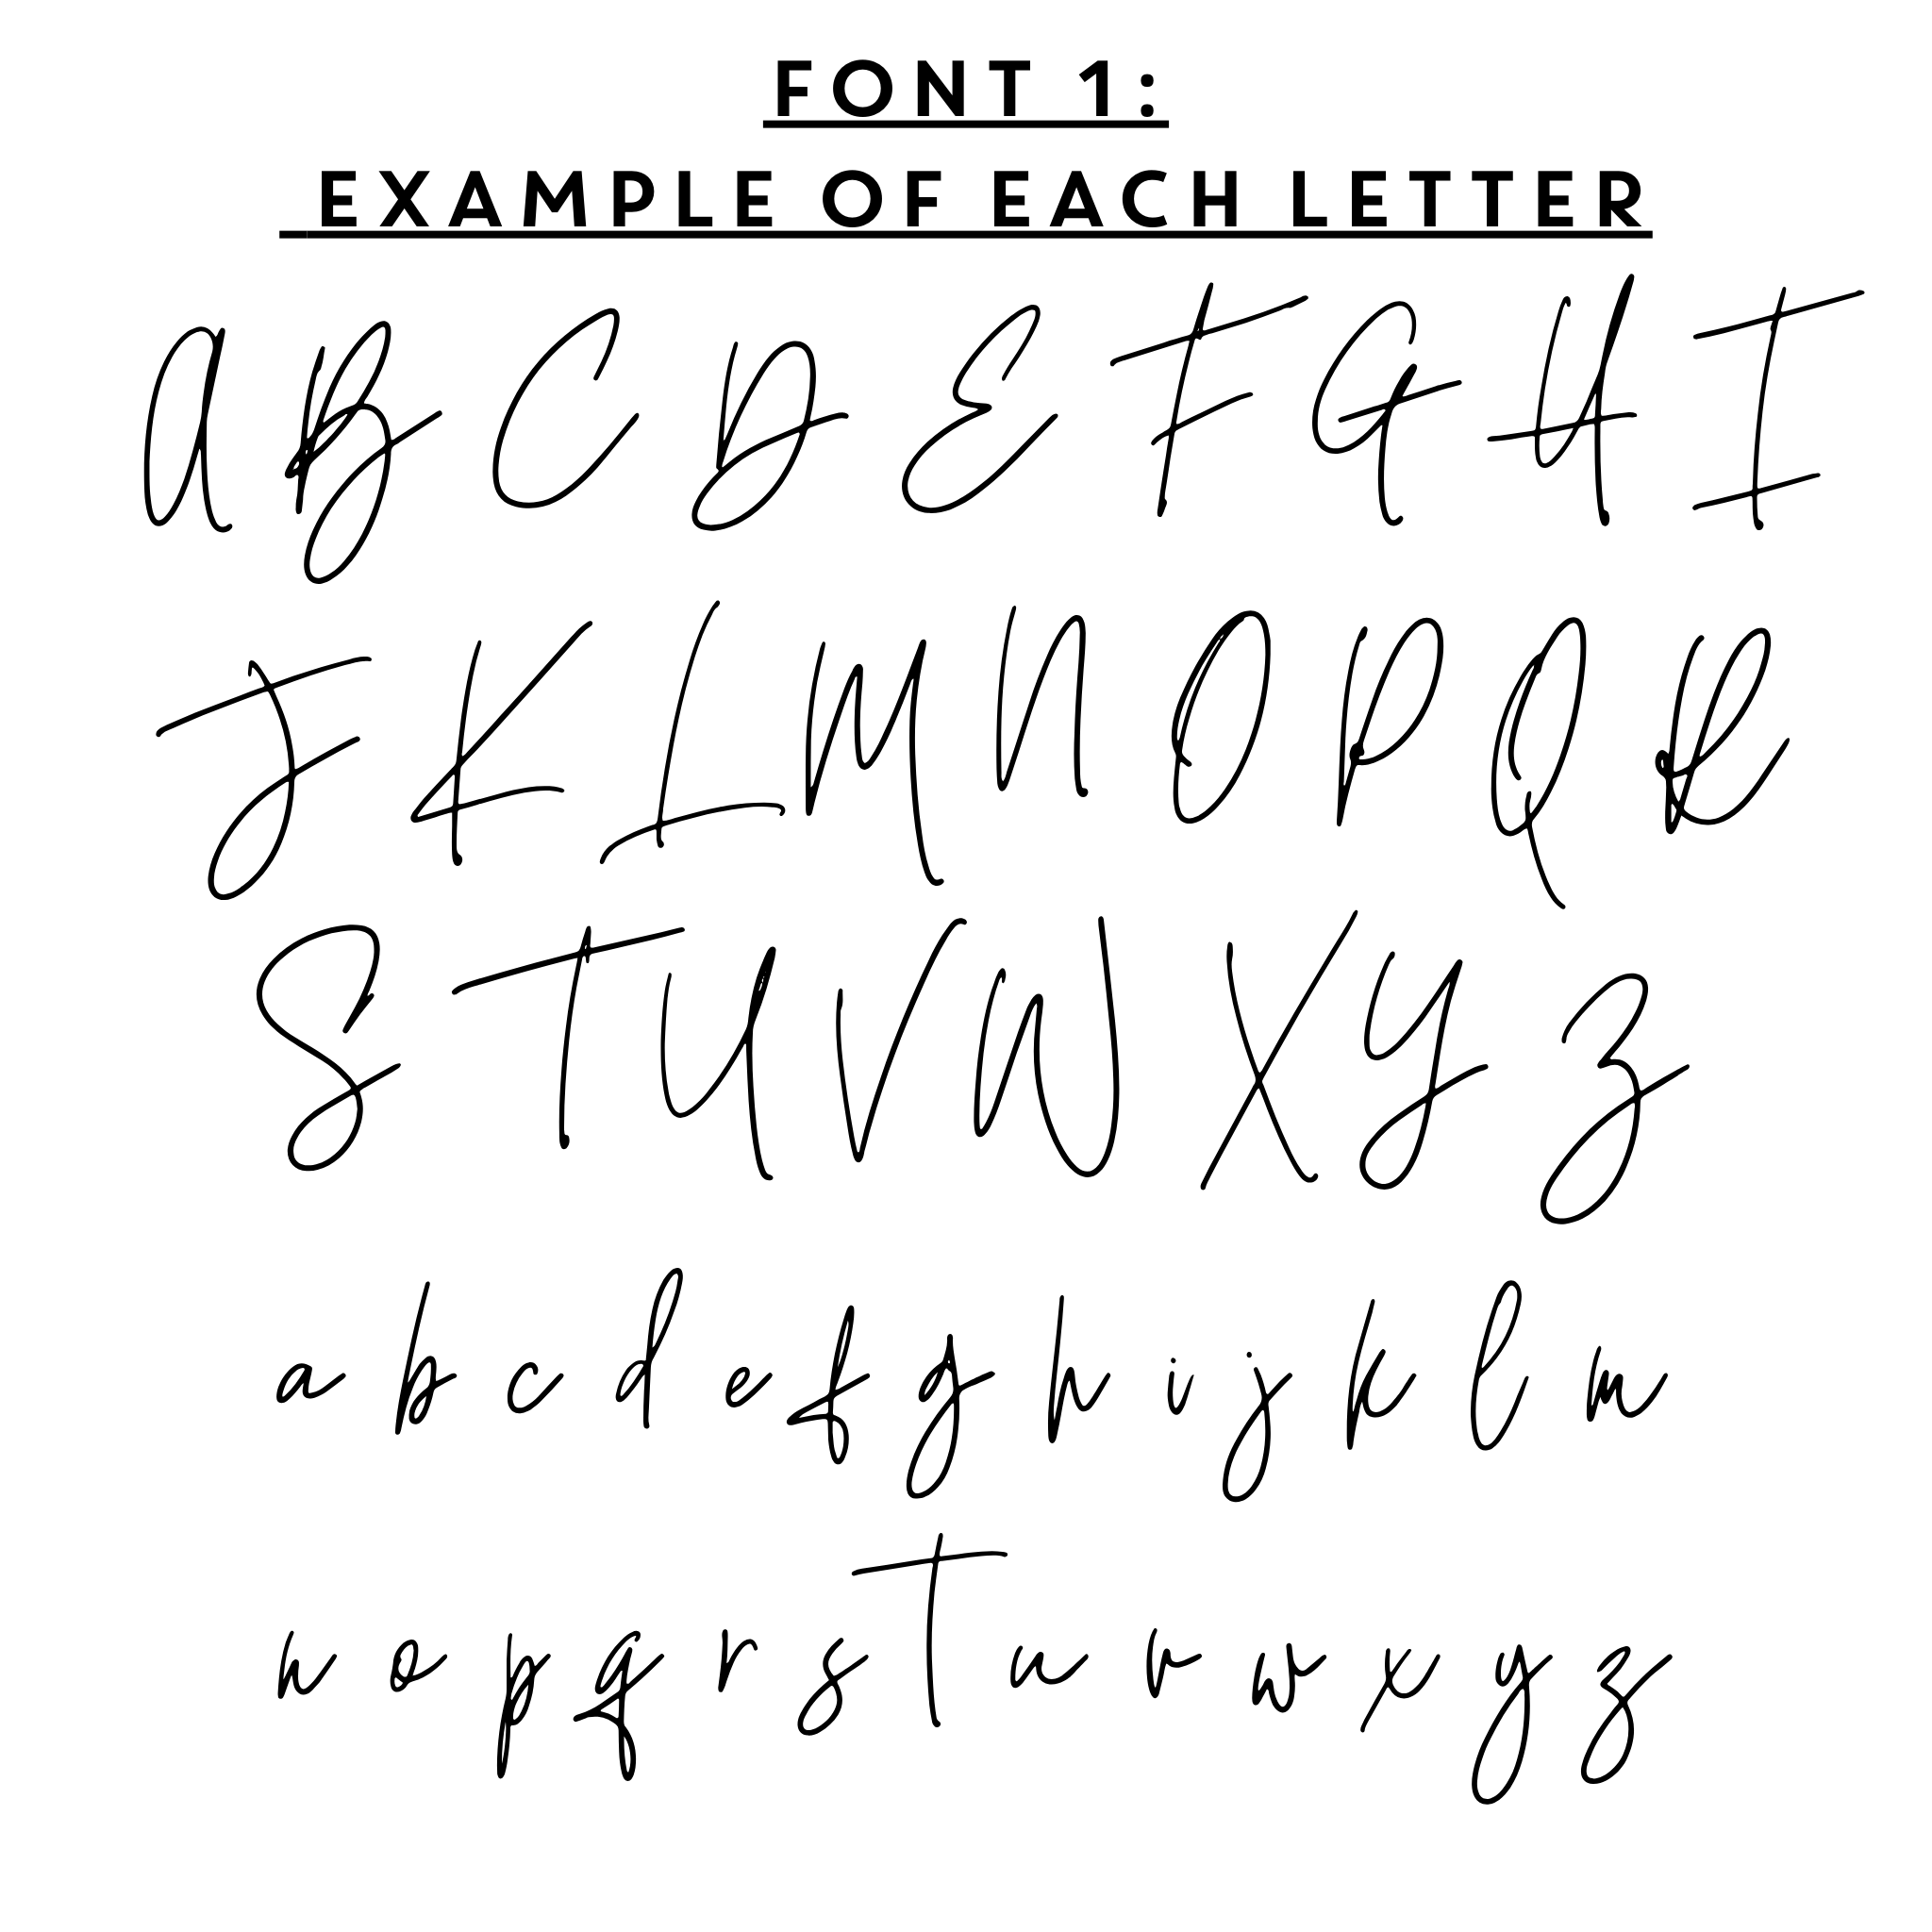 FONT 1:
EXAMPLE OF EACH LETTER
A B C D E F G H I
J K L M N O P Q R
S T U V W X Y Z
a b c d e f g h i j k l m
n o p q r s t u v w x y z